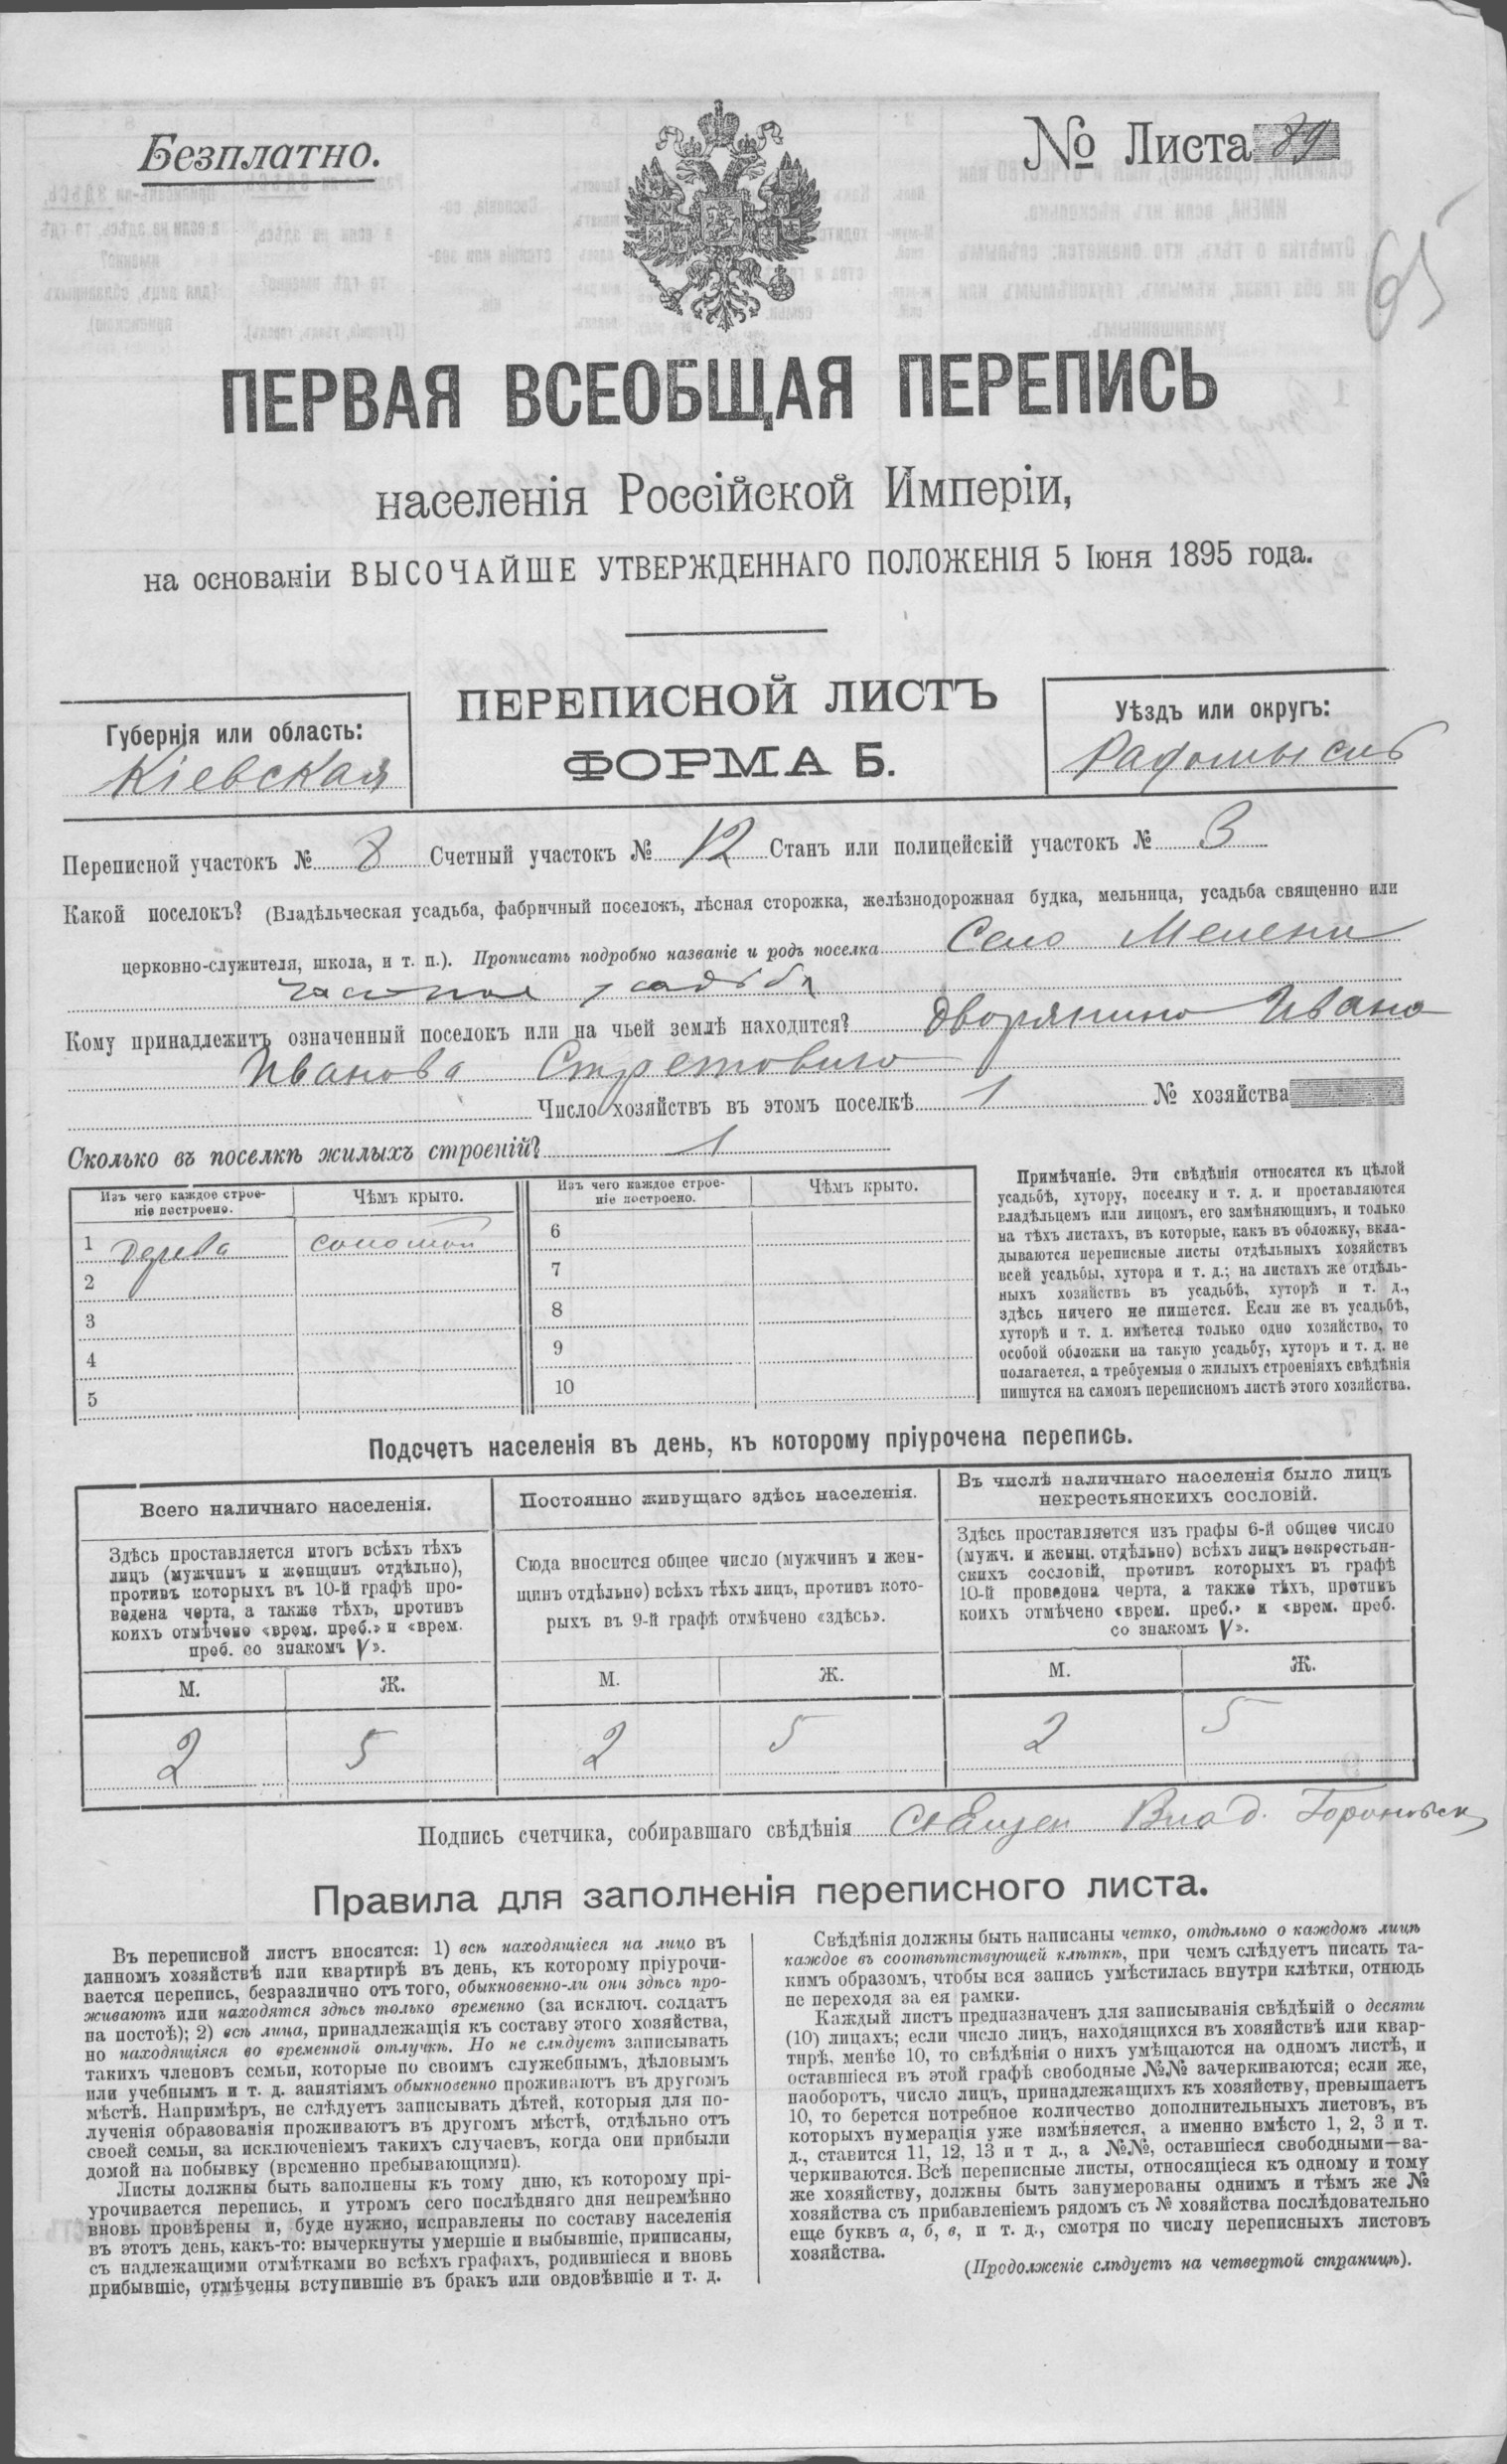 Безплатно.
№ Листа 89
65
ПЕРВАЯ ВСЕОБЩАЯ ПЕРЕПИСЬ
населенія Россійской Имперіи,
на основаніи ВЫСОЧАЙШЕ УТВЕРЖДЕННАГО ПОЛОЖЕНІЯ 5 Іюня 1895 года.
Губернія или область:
Кіевская
ПЕРЕПИСНОЙ ЛИСТЪ
ФОРМА Б.
Уѣздъ или округъ:
Радомысль
Переписной участокъ № 8 Счетный участокъ № 12 Станъ или полицейскій участокъ № 3
Какой поселокъ? (Владѣльческая усадьба, фабричный поселокъ, лѣсная сторожка, желѣзнодорожная будка, мельница, усадьба священно или
церковно-служителя, школа, и т. п.). Прописать подробно названіе и родъ поселка Село Мелени
усадьба
Кому принадлежитъ означенный поселокъ или на чьей землѣ находится? Дворянино Ивано
Иванова Стретовичо
Число хозяйствъ въ этомъ поселкѣ 1 № хозяйства
Сколько въ поселкѣ жилыхъ строеній? 1
Изъ чего каждое строе-
ніе построено.
Чѣмъ крыто.
Изъ чего каждое строе-
ніе построено.
Чѣмъ крыто.
1 Дерева соломой
2
3
4
5
6
7
8
9
10
Примѣчаніе. Эти свѣдѣнія относятся къ цѣлой
усадьбѣ, хутору, поселку и т. д. и проставляются
владѣльцемъ или лицомъ, его замѣняющимъ, и только
на тѣхъ листахъ, въ которые, какъ въ обложку, вкла-
дываются переписные листы отдѣльныхъ хозяйствъ
всей усадьбы, хутора и т. д.; на листахъ же отдѣль-
ныхъ хозяйствъ въ усадьбѣ, хуторѣ и т. д.,
здѣсь ничего не пишется. Если же въ усадьбѣ,
хуторѣ и т. д. имѣется только одно хозяйство, то
особой обложки на такую усадьбу, хуторъ и т. д. не
полагается, а требуемыя о жилыхъ строеніяхъ свѣдѣнія
пишутся на самомъ переписномъ листѣ этого хозяйства.
Подсчетъ населенія въ день, къ которому пріурочена перепись.
Всего наличнаго населенія.
Здѣсь проставляется итогъ всѣхъ тѣхъ
лицъ (мужчинъ и женщинъ отдѣльно),
противъ которыхъ въ 10-й графѣ про-
ведена черта, а также тѣхъ, противъ
коихъ отмѣчено «врем. преб.» и «врем.
преб. со знакомъ V».
М. Ж.
2 5
Постоянно живущаго здѣсь населенія.
Сюда вносится общее число (мужчинъ и жен-
щинъ отдѣльно) всѣхъ тѣхъ лицъ, противъ кото-
рыхъ въ 9-й графѣ отмѣчено «здѣсь».
М. Ж.
2 5
Въ числѣ наличнаго населенія было лицъ
некрестьянскихъ сословій.
Здѣсь проставляется изъ графы 6-й общее число
(мужч. и женщ. отдѣльно) всѣхъ лицъ некрестьян-
скихъ сословій, противъ которыхъ въ графѣ
10-й проведена черта, а также тѣхъ, противъ
коихъ отмѣчено «врем. преб.» и «врем. преб.
со знакомъ V».
М. Ж.
2 5
Подпись счетчика, собиравшаго свѣдѣнія Влад.
Правила для заполненія переписного листа.
Въ переписной листъ вносятся: 1) всѣ находящіеся на лицо въ
данномъ хозяйствѣ или квартирѣ въ день, къ которому пріурочи-
вается перепись, безразлично отъ того, обыкновенно-ли они здѣсь про-
живаютъ или находятся здѣсь только временно (за исключ. солдатъ
на постоѣ); 2) всѣ лица, принадлежащія къ составу этого хозяйства,
но находящіяся во временной отлучкѣ. Но не слѣдуетъ записывать
такихъ членовъ семьи, которые по своимъ служебнымъ, дѣловымъ
или учебнымъ и т. д. занятіямъ обыкновенно проживаютъ въ другомъ
мѣстѣ. Напримѣръ, не слѣдуетъ записывать дѣтей, которыя для по-
лученія образованія проживаютъ въ другомъ мѣстѣ, отдѣльно отъ
своей семьи, за исключеніемъ такихъ случаевъ, когда они прибыли
домой на побывку (временно пребывающими).
Листы должны быть заполнены къ тому дню, къ которому прі-
урочивается перепись, и утромъ сего послѣдняго дня непремѣнно
вновь провѣрены и, буде нужно, исправлены по составу населенія
въ этотъ день, какъ-то: вычеркнуты умершіе и выбывшіе, приписаны,
съ надлежащими отмѣтками во всѣхъ графахъ, родившіеся и вновь
прибывшіе, отмѣчены вступившіе въ бракъ или овдовѣвшіе и т. д.
Свѣдѣнія должны быть написаны четко, отдѣльно о каждомъ лицѣ
каждое въ соотвѣтствующей клѣткѣ, при чемъ слѣдуетъ писать та-
кимъ образомъ, чтобы вся запись умѣстилась внутри клѣтки, отнюдь
не переходя за ея рамки.
Каждый листъ предназначенъ для записыванія свѣдѣній о десяти
(10) лицахъ; если число лицъ, находящихся въ хозяйствѣ или квар-
тирѣ, менѣе 10, то свѣдѣнія о нихъ умѣщаются на одномъ листѣ, и
оставшіеся въ этой графѣ свободные №№ зачеркиваются; если же,
наоборотъ, число лицъ, принадлежащихъ къ хозяйству, превышаетъ
10, то берется потребное количество дополнительныхъ листовъ, въ
которыхъ нумерація уже измѣняется, а именно вмѣсто 1, 2, 3 и т.
д., ставится 11, 12, 13 и т д., а №№, оставшіеся свободными—за-
черкиваются. Всѣ переписные листы, относящіеся къ одному и тому
же хозяйству, должны быть занумерованы однимъ и тѣмъ же №
хозяйства съ прибавленіемъ рядомъ съ № хозяйства послѣдовательно
еще буквъ а, б, в, и т. д., смотря по числу переписныхъ листовъ
хозяйства.
(Продолженіе слѣдуетъ на четвертой страницѣ).